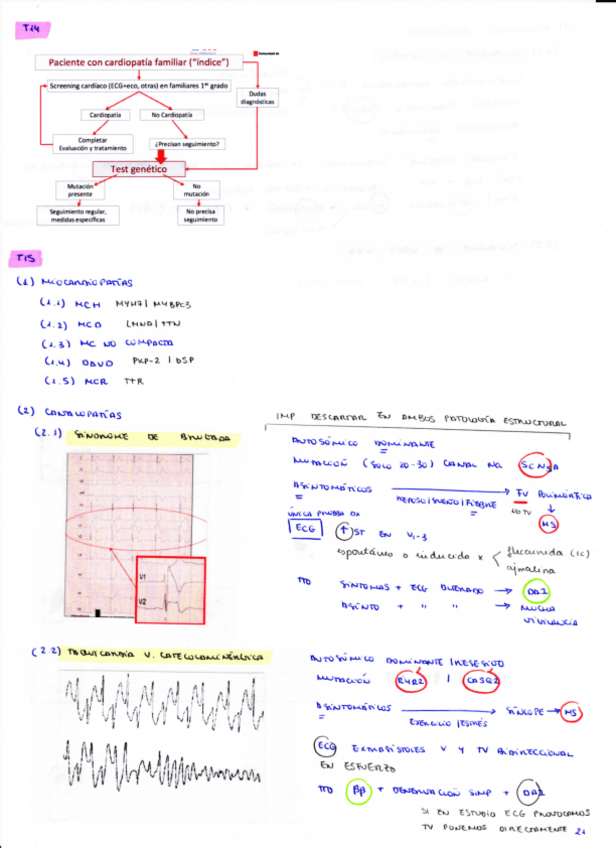 T14
Paciente con cardiopatía familiar ("índice")
Screening cardíaco (ECG+eco, otras) en familiares 1er grado
Dudas
diagnósticas
Cardiopatía
No Cardiopatía
Completar
Evaluación y tratamiento
¿Precisan seguimiento?
Test genético
Mutación
presente
No
mutación
Seguimiento regular,
medidas específicas
No precisa
seguimiento
T15
(1) MIOCARDIOPATÍAS
(1.1) MCH MYH7 / MYBPC3
(1.2) MCD LMNA / TTN
(1.3) MC NO COMPACTA
(1.4) DAVD PKP-2 / DSP
(1.5) MCR TTR
(2) CANALOPATÍAS
IMP DESCARTAR EN AMBOS PATOLOGÍA ESTRUCTURAL
(2.1) SÍNDROME DE BRUGADA
AUTOSÓMICO DOMINANTE
MUTACIÓN (SOLO 20-30) CANAL Na SCN5A
ASINTOMÁTICOS → FV POLIMÓRFICA
REPOSO/SUEÑO/FIEBRE
NO TV
↓
MS
ÚNICA PRUEBA DX
ECG ↑ ST EN V1-3
espontáneo o inducido x flecainida (IC)
ajmalina
V1
V2
TTO SÍNTOMAS + ECG BRUGADA → DAI
ASINTO + " " → MUCHA
VIGILANCIA
(2.2) TAQUICARDIA V. CATECOLAMINÉRGICA
AUTOSÓMICO DOMINANTE / RECESIVO
MUTACIÓN RYR2 / CASQ2
ASINTOMÁTICOS → SÍNCOPE → MS
EJERCICIO / ESTRÉS
ECG EXTRASÍSTOLES V Y TV BIDIRECCIONAL
EN ESFUERZO
TTO BB + DENERVACIÓN SIMP + DAI
SI EN ESTUDIO ECG PROVOCAMOS
TV PONEMOS DIRECTAMENTE
21